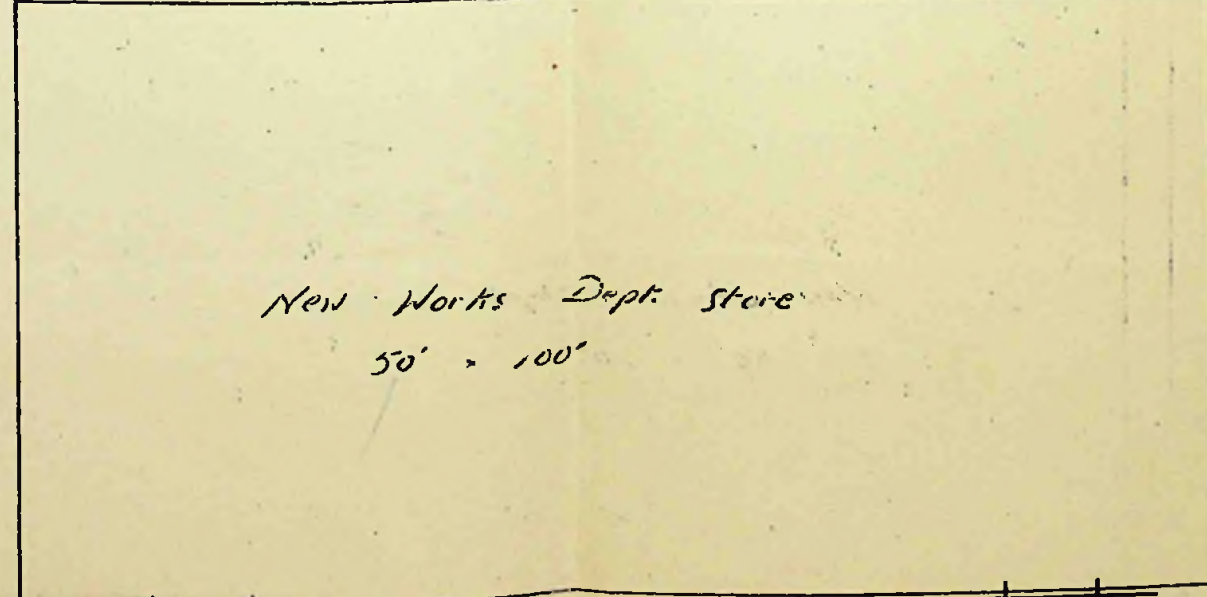 New Works Dept. Store
50' x 100'